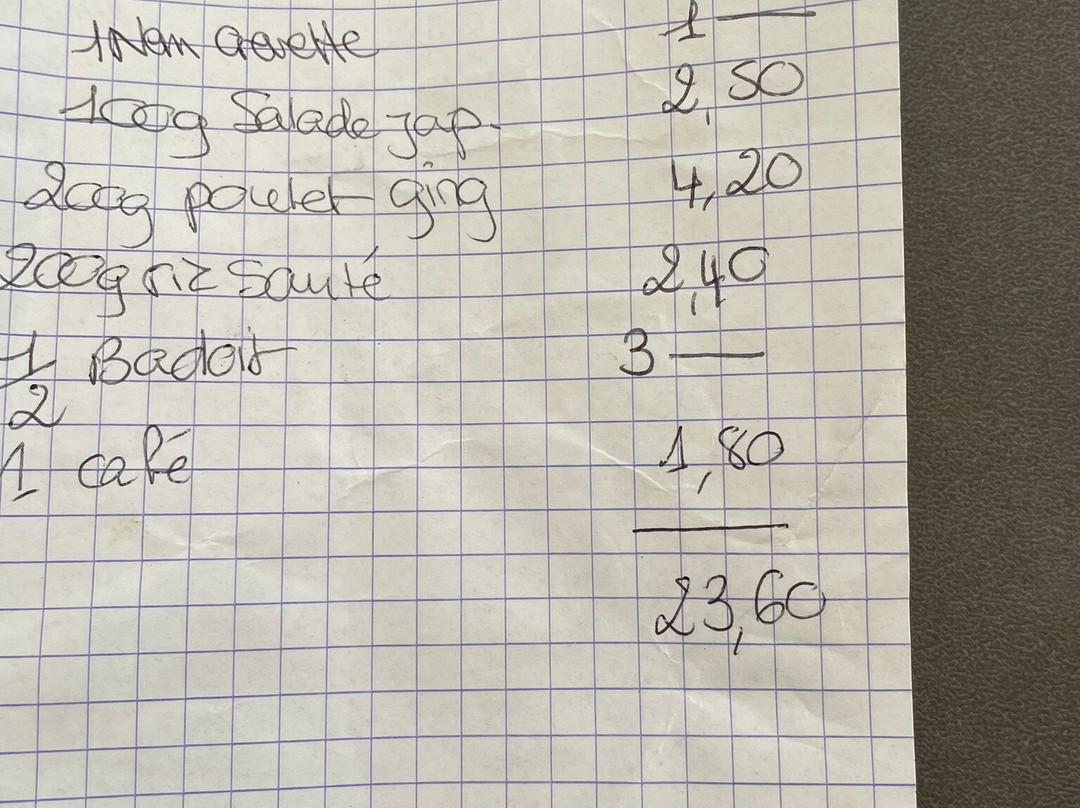 1 Nem Crevette 1 —
100g Salade jap. 2,50
200g poulet ging 4,20
200g riz Sauté 2,40
1/2 Badoit 3 —
1 café 1,80
23,60